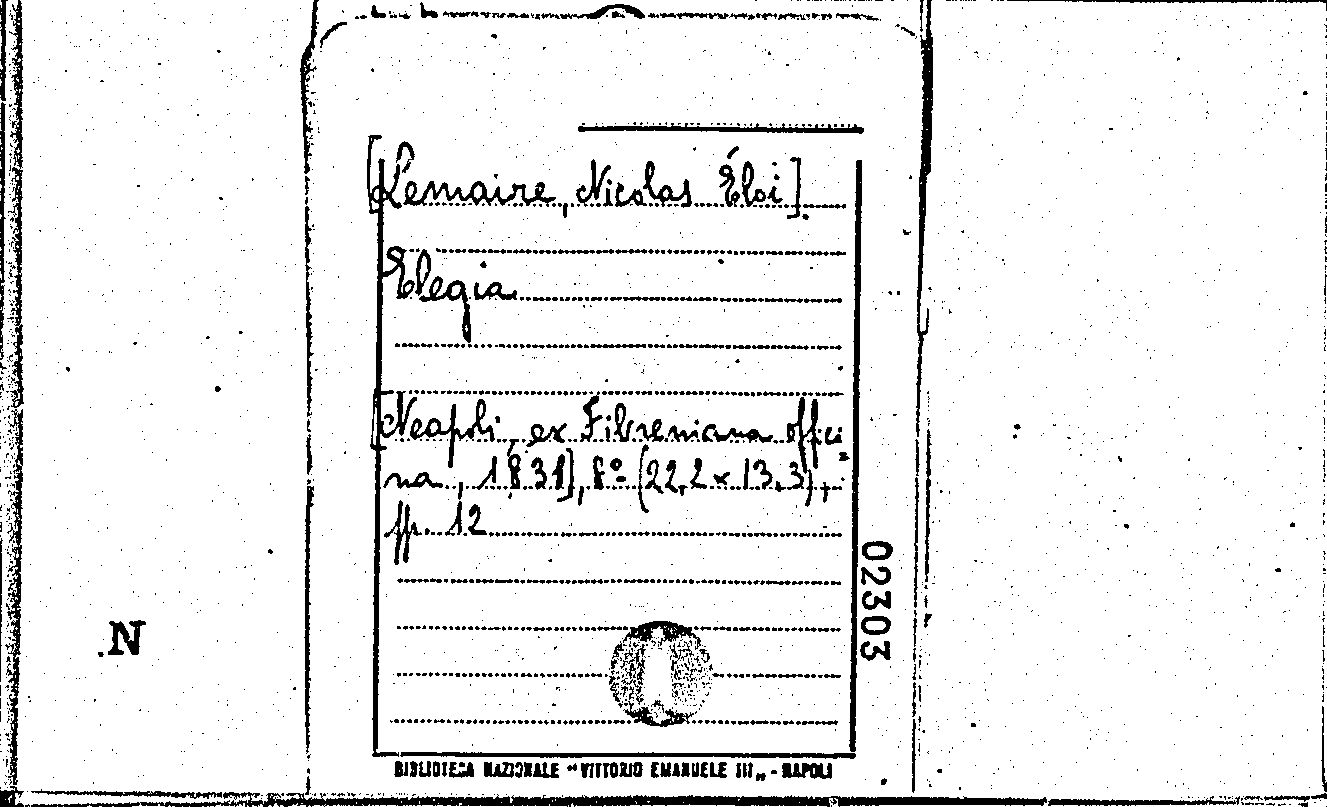 [Lemaire, Nicolas Éloi].
Elegia
[Neapoli, ex Fibreniana offici
na, 1831], 8º (22,2 x 13,3),
pp. 12
02303
.N
BIBLIOTECA NAZIONALE "VITTORIO EMANUELE III„ - NAPOLI